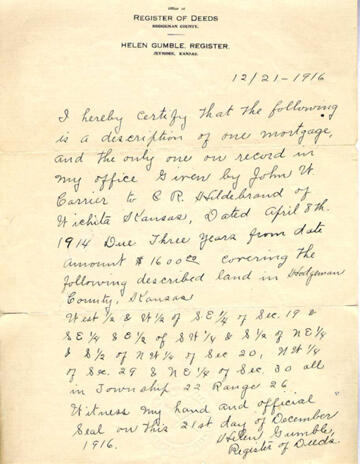 Office of
REGISTER OF DEEDS
HODGEMAN COUNTY.
HELEN GUMBLE, REGISTER.
JETMORE, KANSAS.
12/21-1916
I hereby certify that the following
is a description of one mortgage,
and the only one on record in
my office Given by John W
Carrier to C R. Hildebrand of
Wichita Kansas, Dated April 8th.
1914 Due Three Years from date
Amount $1600 00 covering the
following described land in Hodgeman
County, Kansas
West 1/2 & W 1/2 of S E 1/4 of Sec. 19 &
S E 1/4 S E 1/2 of S W 1/4 & S 1/2 of N E 1/4
& S 1/2 of N W 1/4 of Sec 20, N W 1/4
of Sec. 29 & N E 1/4 of Sec. 30 all
in Township 22 Range 26
Witness my hand and official
Seal on this 21st day of December
1916.
Helen Gumble,
Register of Deeds